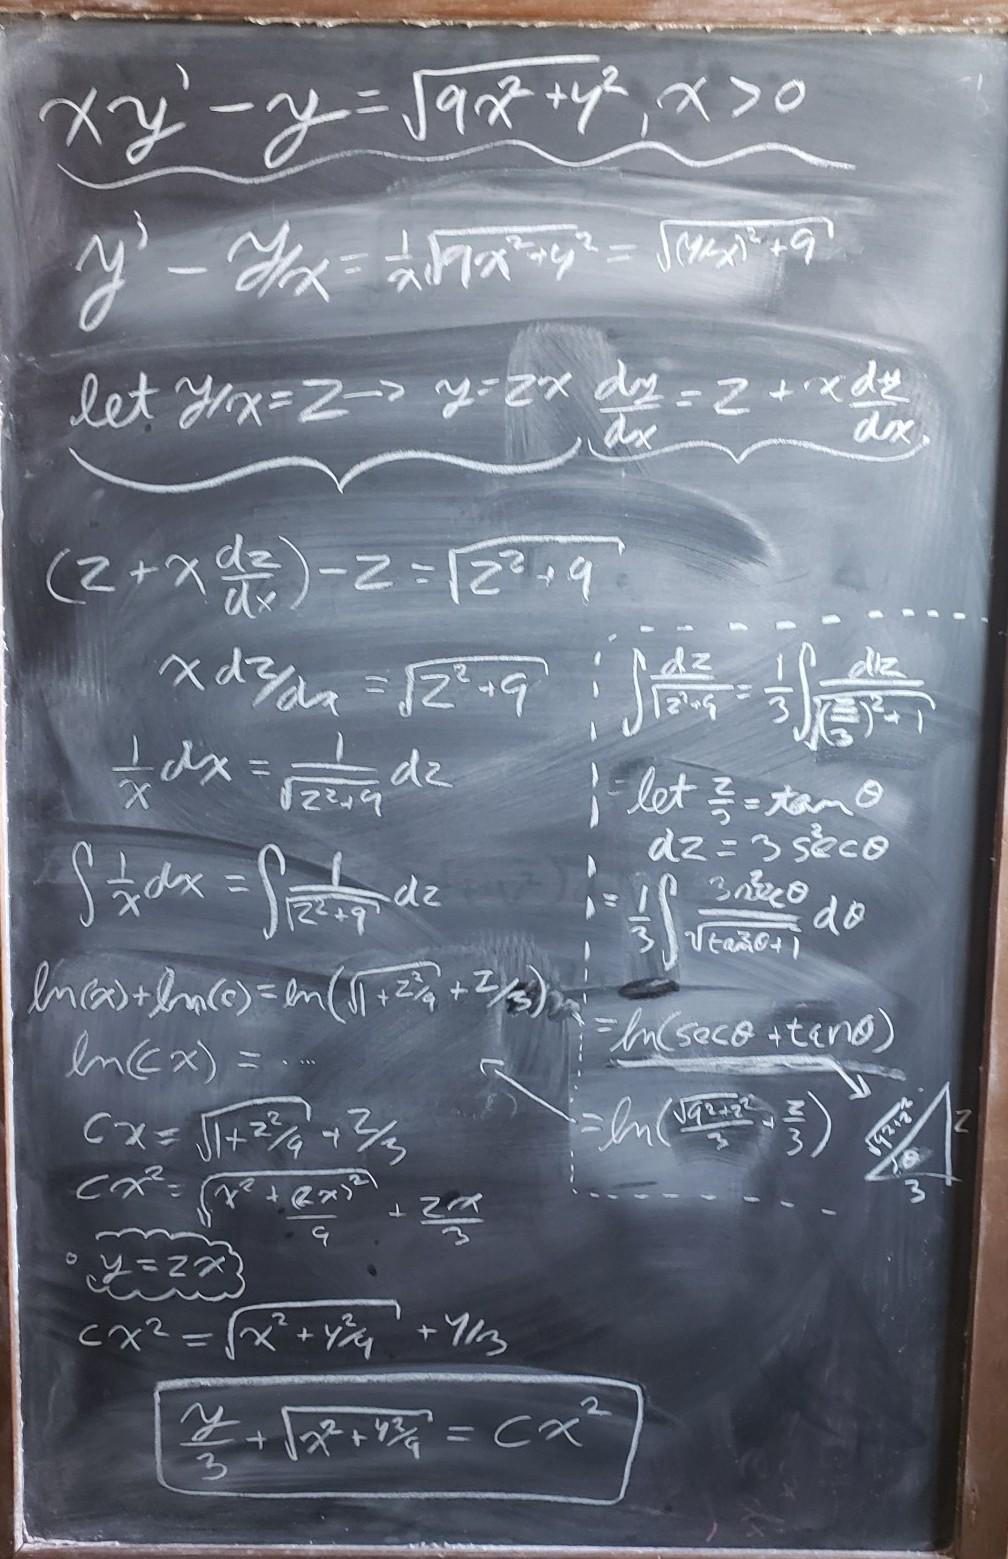 xy' - y = √(9x² + y²), x > 0
y' - y/x = 1/x √(9x² + y²) = √((y/x)² + 9)
let y/x = z → y = zx dy/dx = z + x dy/dx
(z + x dz/dx) - z = √(z² + 9)
x dz/dx = √(z² + 9)
1/x dx = 1/√(z² + 9) dz
∫ 1/x dx = ∫ 1/√(z² + 9) dz
ln(x) + ln(c) = ln(√(1 + z²/9) + z/3)
ln(cx) = ....
cx = √(1 + z²/9) + z/3
cx² = √(x² + (zx)²/9) + zx/3
y = zx
cx² = √(x² + y²/9) + y/3
y/3 + √(x² + y²/9) = cx²
∫ dz/√(z² + 9) = 1/3 ∫ dz/√((z/3)² + 1)
let z/3 = tan θ
dz = 3 sec²θ
= 1/3 ∫ 3 sec²θ/√(tan²θ + 1) dθ
= ln(secθ + tanθ)
= ln(√(9² + z²)/3 + z/3)
√(9² + z²) z
θ
3